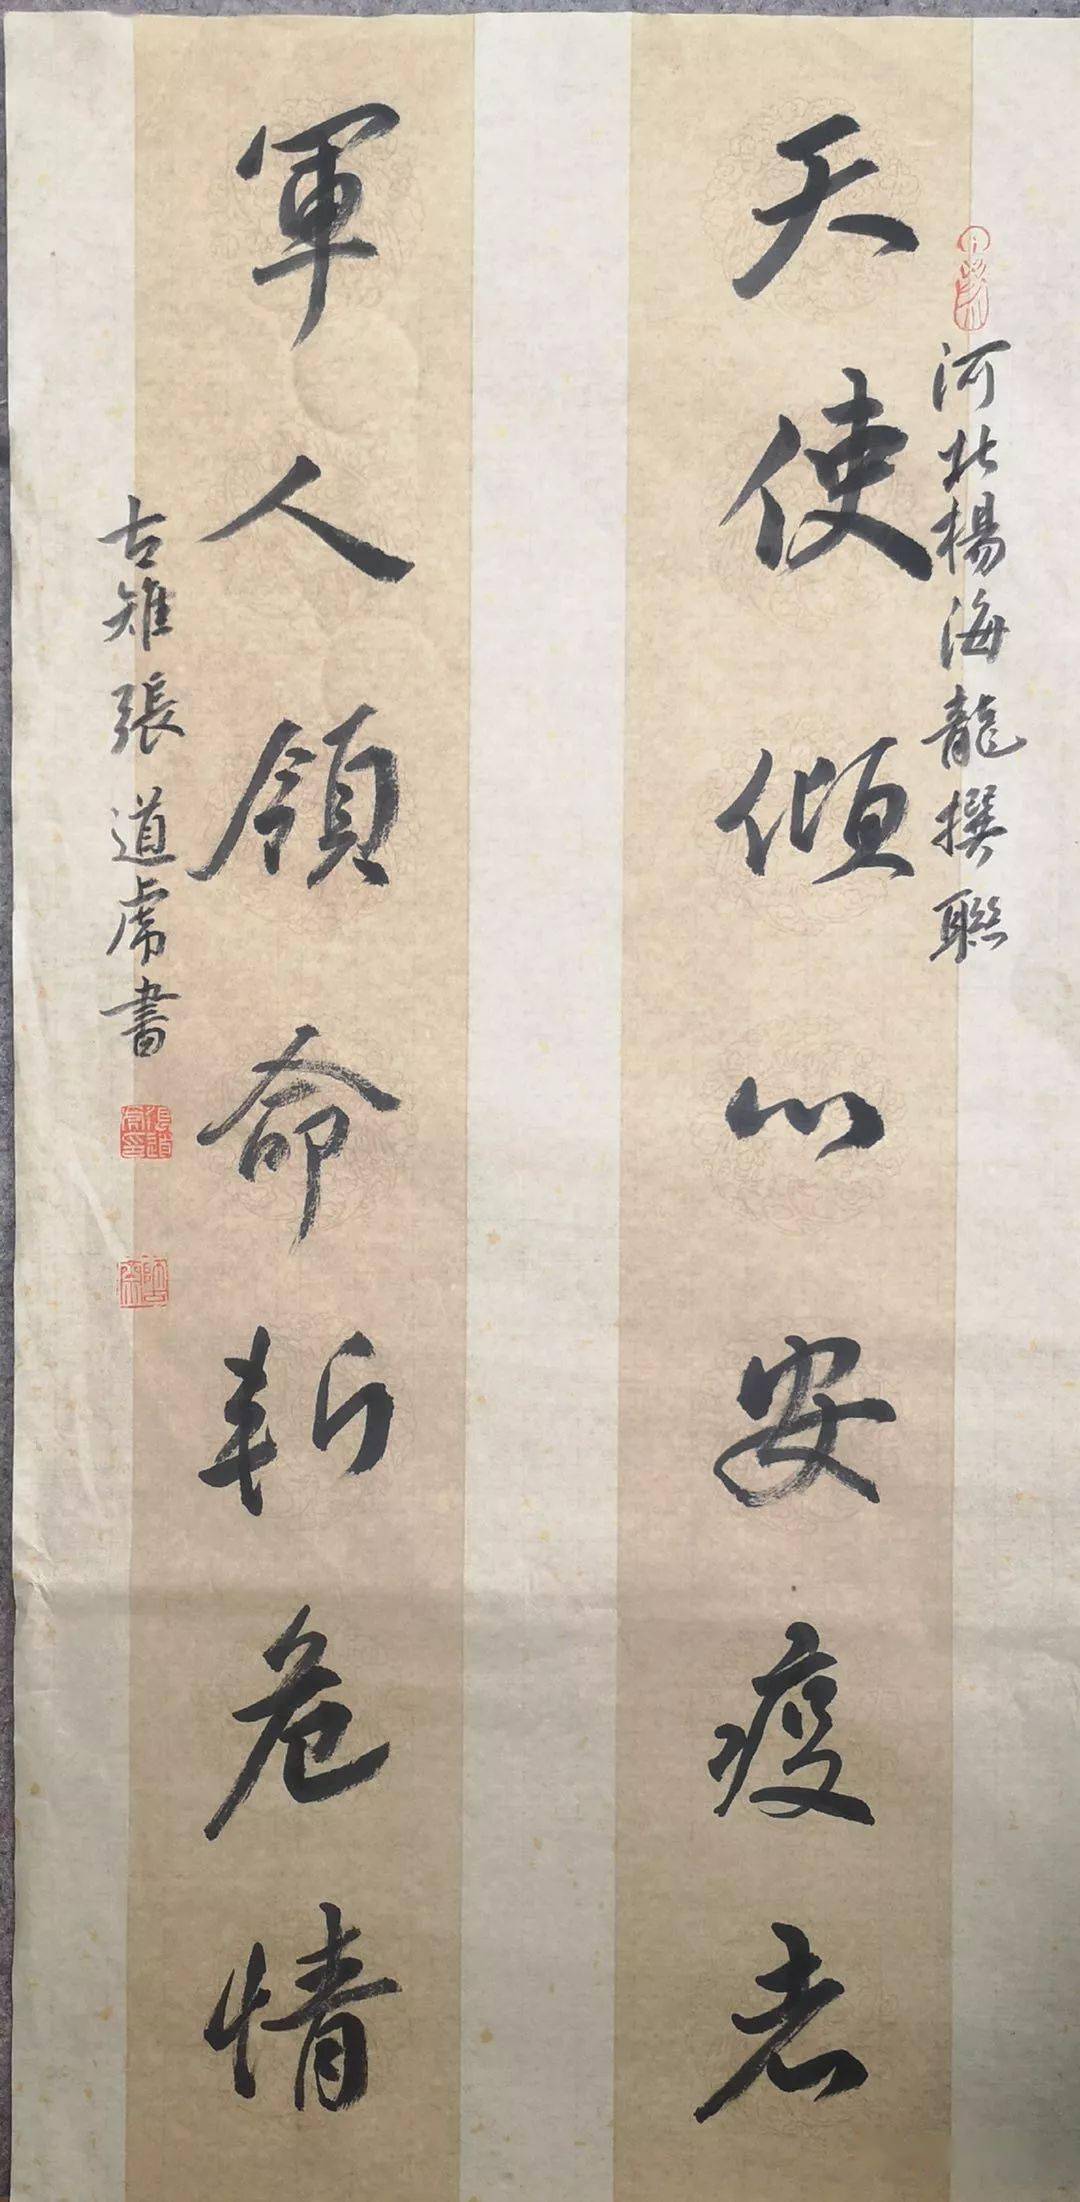 河北楊海龍撰聯
天使傾心安疫者
軍人領命斬危情
古雉張道虎書